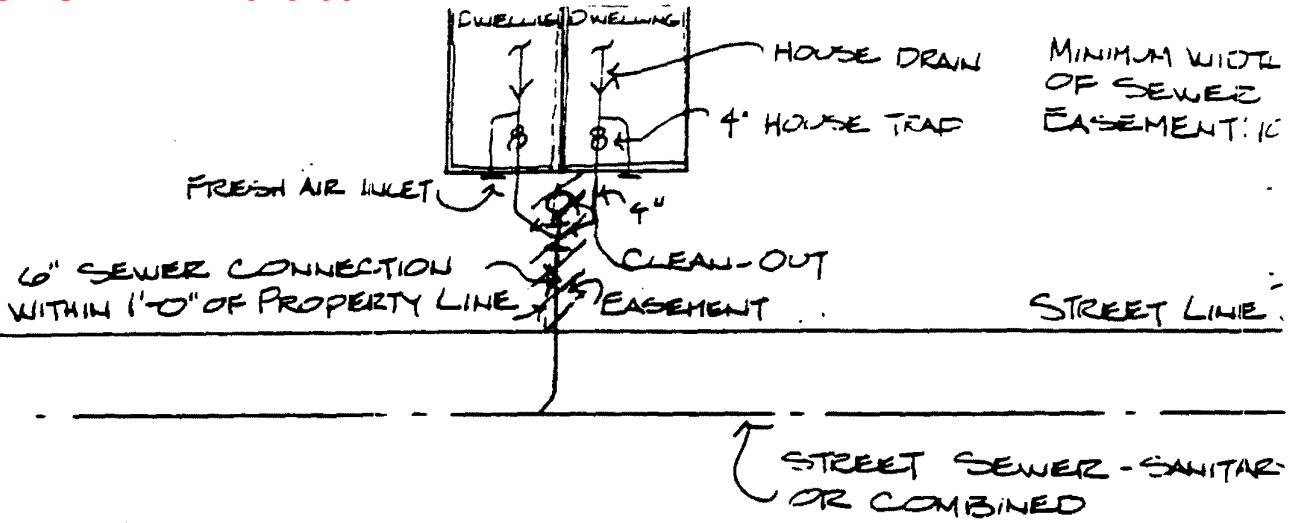 DWELLING DWELLING
HOUSE DRAIN
MINIMUM WIDTH
OF SEWER
EASEMENT:
4" HOUSE TRAP
8 8
FRESH AIR INLET
4"
CLEAN-OUT
6" SEWER CONNECTION
WITHIN 1'-0" OF PROPERTY LINE
EASEMENT
STREET LINE
STREET SEWER - SANITAR
OR COMBINED